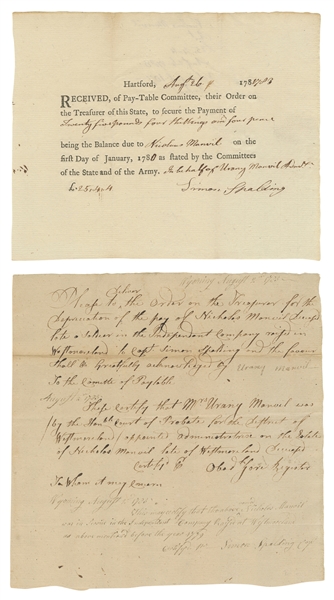 Hartford, Augt 26th 1783
RECEIVED, of Pay-Table Committee, their Order on
the Treasurer of this State, to secure the Payment of
Twenty five pounds four shillings and four pence
being the Balance due to Nicholas Manvil on the
first Day of January, 1780 as stated by the Committees
of the State and of the Army. In behalf of Urany Manvil
£25..4..4 Simon Spalding
Deliver
Please to the Order on the Treasurer for the
Depreciation of the pay of Nicholas Manvil
late a soldier in the Independent Company raised in
Westmoreland to Capt Simon Spalding and the favour
shall be Greatfully acknowledged by Urany Manvil
To the Pay table
These certify that Mrs Urany Manvil was
by the Court of Probate for the District of
Westmoreland appointed administratrix on the Estate
of Nicholas Manvil late of Westmoreland
Certifyd Obad Gore Register
To Whom it may concern
Wyoming August
This may certify that Nicholas Manvil
was in the Independent Company
as above mentioned before the year
Simon Spalding